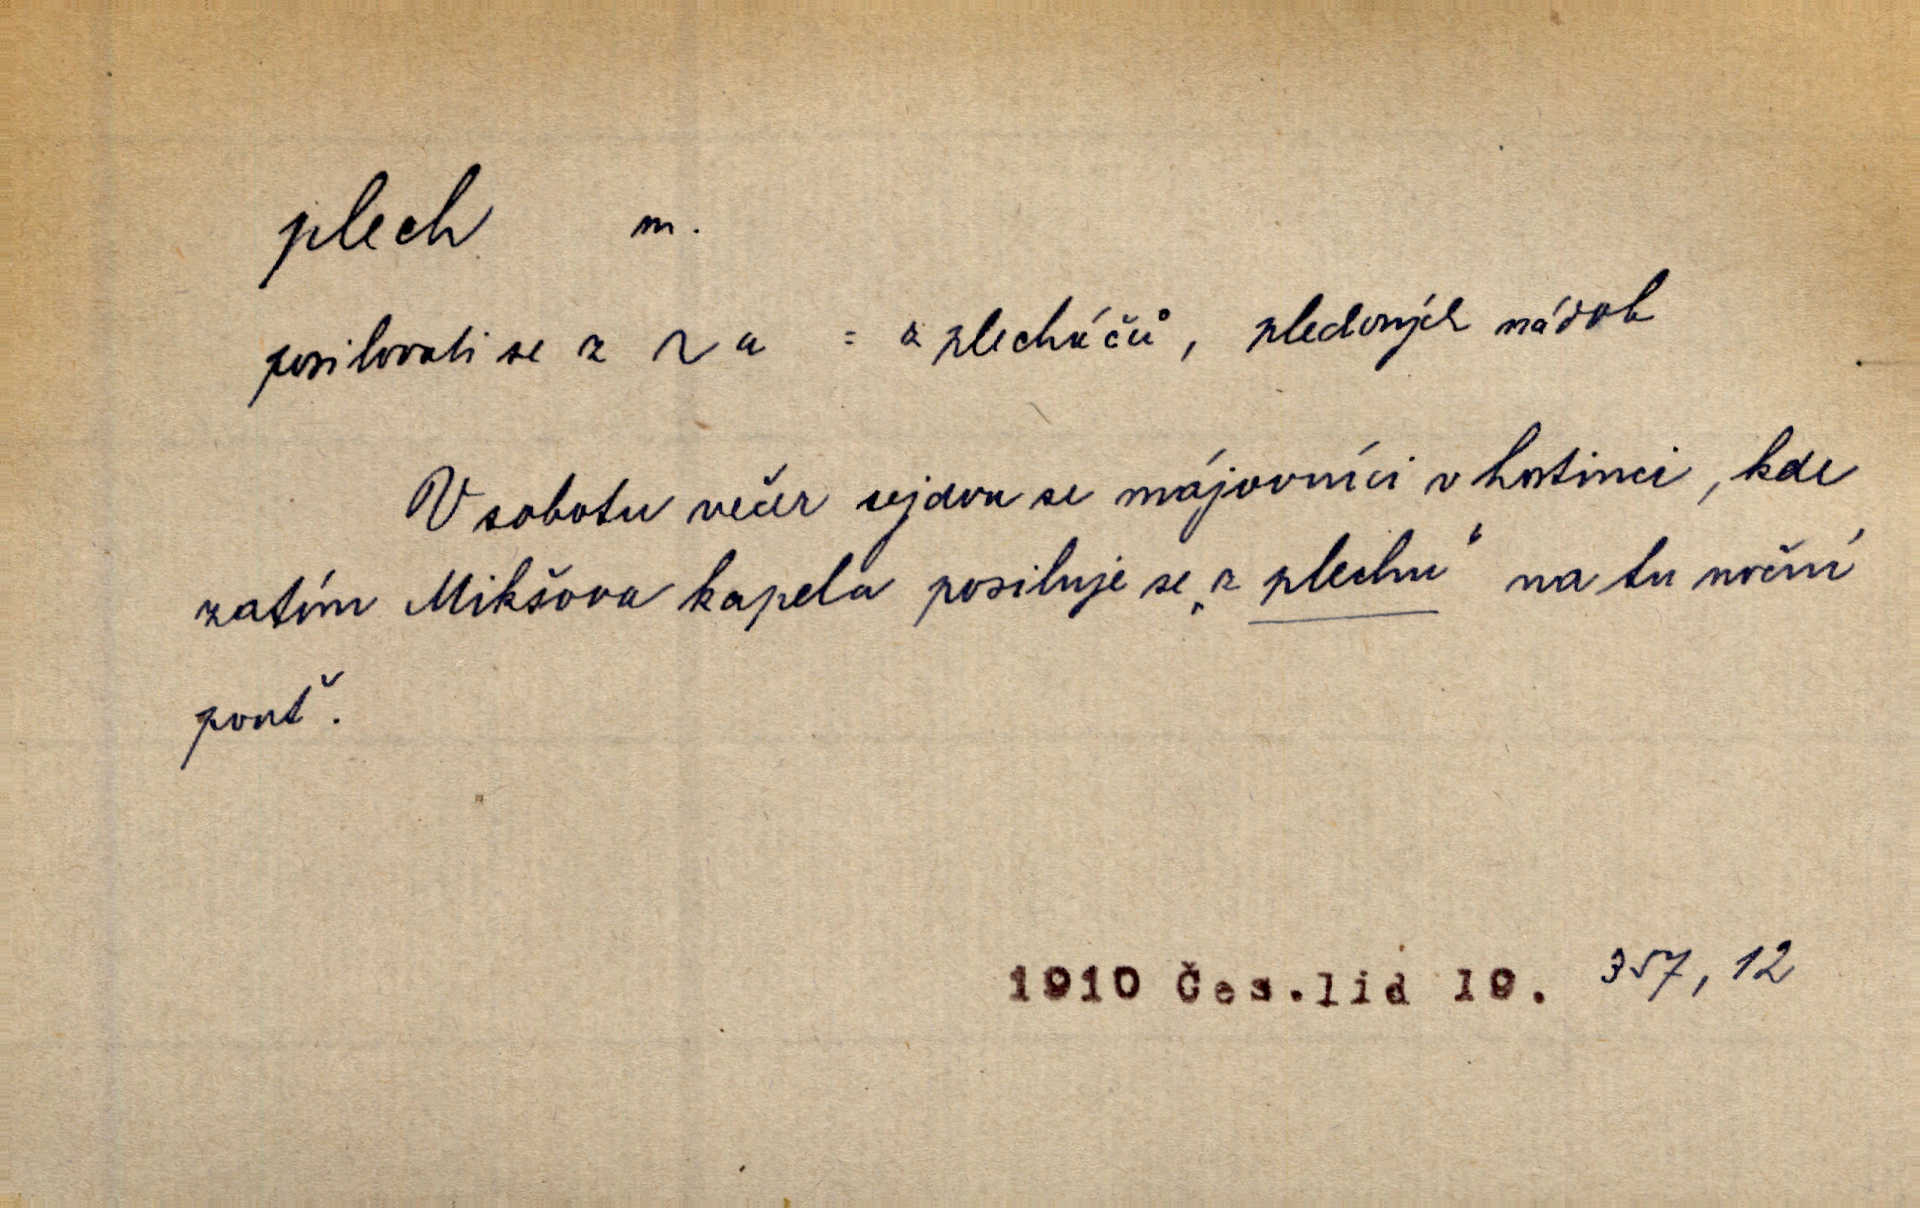 plech m.
posilovati se z ~ u = z plecháčů, plechových nádob
V sobotu večer sejdou se májovníci v hostinci, kde
zatím Mikšova kapela posiluje se „z plechu“ na tu noční
pouť.
1910 Čes.lid 19. 357, 12